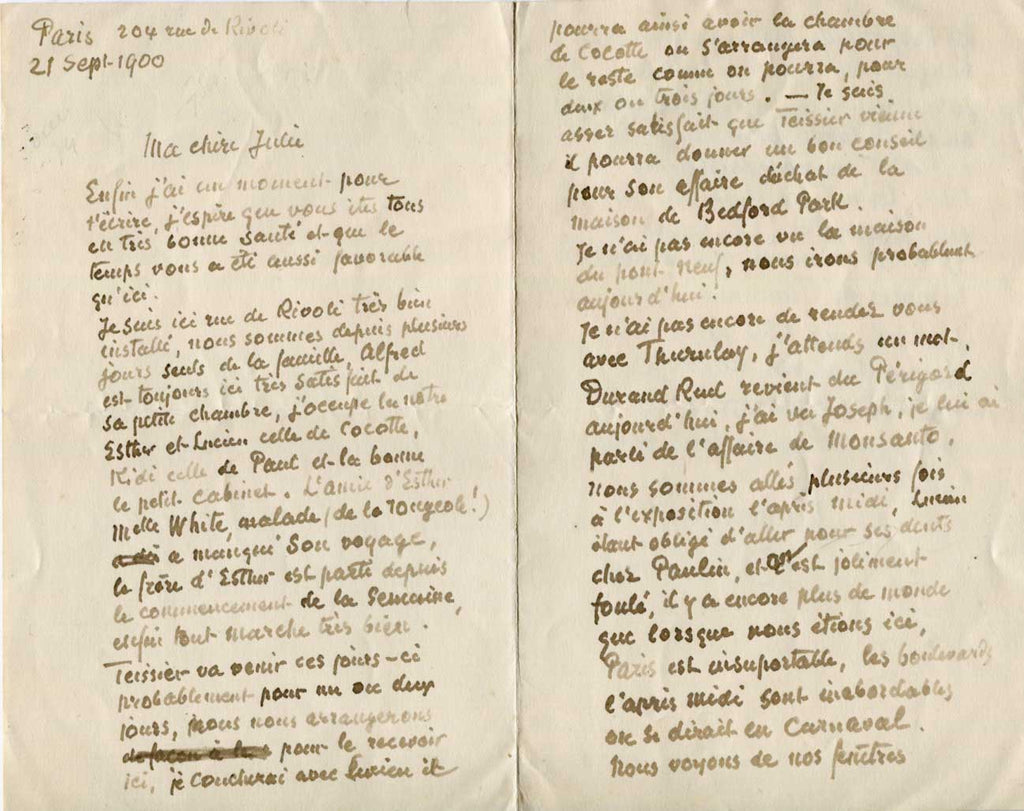 Paris 204 rue de Rivoli
21 Sept-1900
Ma chère Julie
Enfin j'ai un moment pour
t'écrire, j'espère que vous êtes tous
en très bonne santé et que le
temps vous a été aussi favorable
qu'ici.
Je suis ici rue de Rivoli très bien
installé, nous sommes depuis plusieurs
jours seuls de la famille, Alfred
est toujours ici très satisfait de
sa petite chambre, j'occupe la notre
Esther et Lucien celle de Cocotte,
Kidi celle de Paul et la bonne
le petit cabinet. L'amie d'Esther
Melle White, malade (de la rougeole!)
a manqué son voyage,
le frère d'Esther est parti depuis
le commencement de la semaine,
enfin tout marche très bien.
Teissier va venir ces jours-ci
probablement pour un ou deux
jours, nous nous arrangerons
de façon à le pour le recevoir
ici, je coucherai avec Lucien it
pourra ainsi avoir la chambre
de Cocotte on s'arrangera pour
le reste comme on pourra, pour
deux ou trois jours. — Je suis
assez satisfait que Teissier vienne
il pourra donner un bon conseil
pour son affaire d'achat de la
maison de Bedford Park.
Je n'ai pas encore vu la maison
du pont neuf, nous irons probablement
aujourd'hui!
Je n'ai pas encore de rendez vous
avec Thurnlay, j'attends un mot.
Durand Ruel revient du Périgord
aujourd'hui, j'ai vu Joseph, je lui ai
parlé de l'affaire de Monsanto.
Nous sommes allés plusieurs fois
à l'exposition l'après midi, Lucien
étant obligé d'aller pour ses dents
chez Paulin, et c'est joliment
foulé, il y a encore plus de monde
que lorsque nous étions ici,
Paris est insuportable, les boulevards
l'après midi sont inabordables
on se dirait en Carnaval.
Nous voyons de nos fenêtres